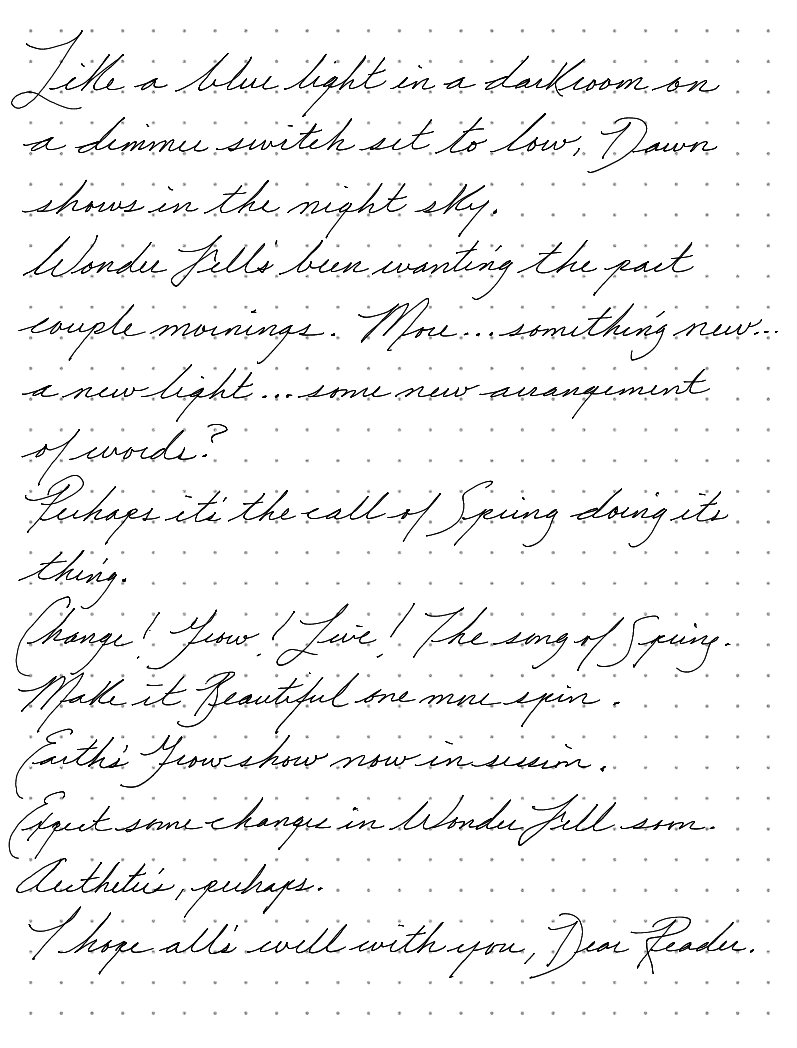 Like a blue light in a darkroom on
a dimmer switch set to low, Dawn
shows in the night sky.
Wonder Fell's been wanting the past
couple mornings. More... something new...
a new light... some new arrangement
of words?
Perhaps it's the call of Spring doing its
thing.
Change! Grow! Live! The song of Spring.
Make it Beautiful one more spin.
Earth's Grow show now in session.
Expect some changes in Wonder Fell soon.
Aesthetics, perhaps.
I hope all's well with you, Dear Reader.